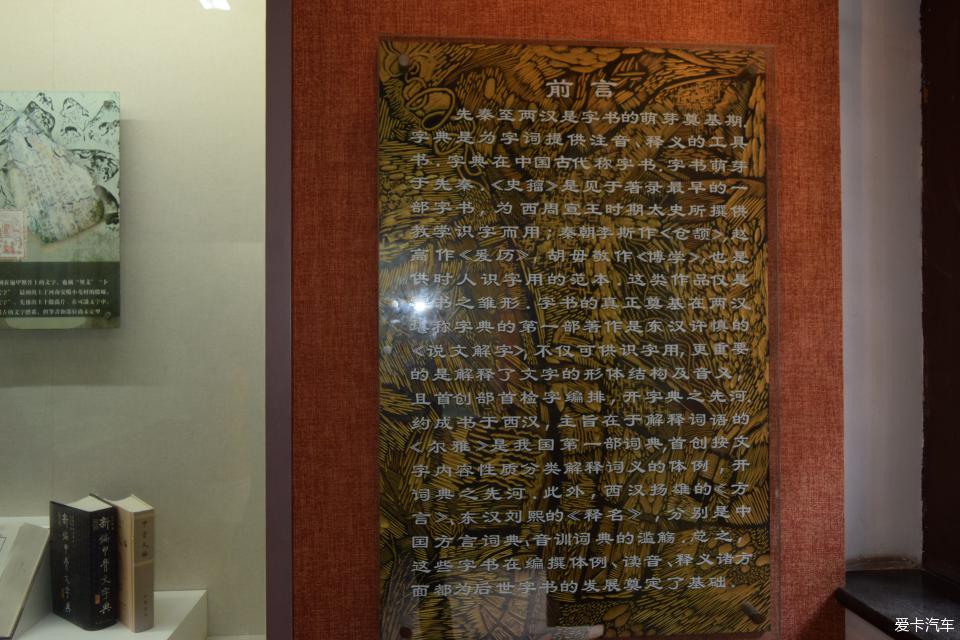 前言
先秦至两汉是字书的萌芽奠基期
字典是为字词提供注音、释义的工具
书.字典在中国古代称字书.字书萌芽
于先秦、《史籀》是见于著录最早的一
部字书，为西周宣王时期太史所撰供
教学识字而用；秦朝李斯作《仓颉》,赵
高作《爰历》，胡毋敬作《博学》,也是
供时人识字用的范本.这些作品仅是
字书之雏形.字书的真正奠基在两汉
堪称字典的第一部著作是东汉许慎的
《说文解字》,不仅可供识字用,更重要
的是解释了文字的形体结构及音义,
且首创部首检字编排，开字典之先河.
约成书于西汉，主旨在于解释词语的
《尔雅》是我国第一部词典,首创按文
字内容性质分类解释词义的体例，开
词典之先河.此外，西汉扬雄的《方
言》,东汉刘熙的《释名》，分别是中
国方言词典、音训词典的滥觞.总之，
这些字书在编撰体例、读音、释义诸方
面都为后世字书的发展奠定了基础.
新编甲骨文字典
爱卡汽车